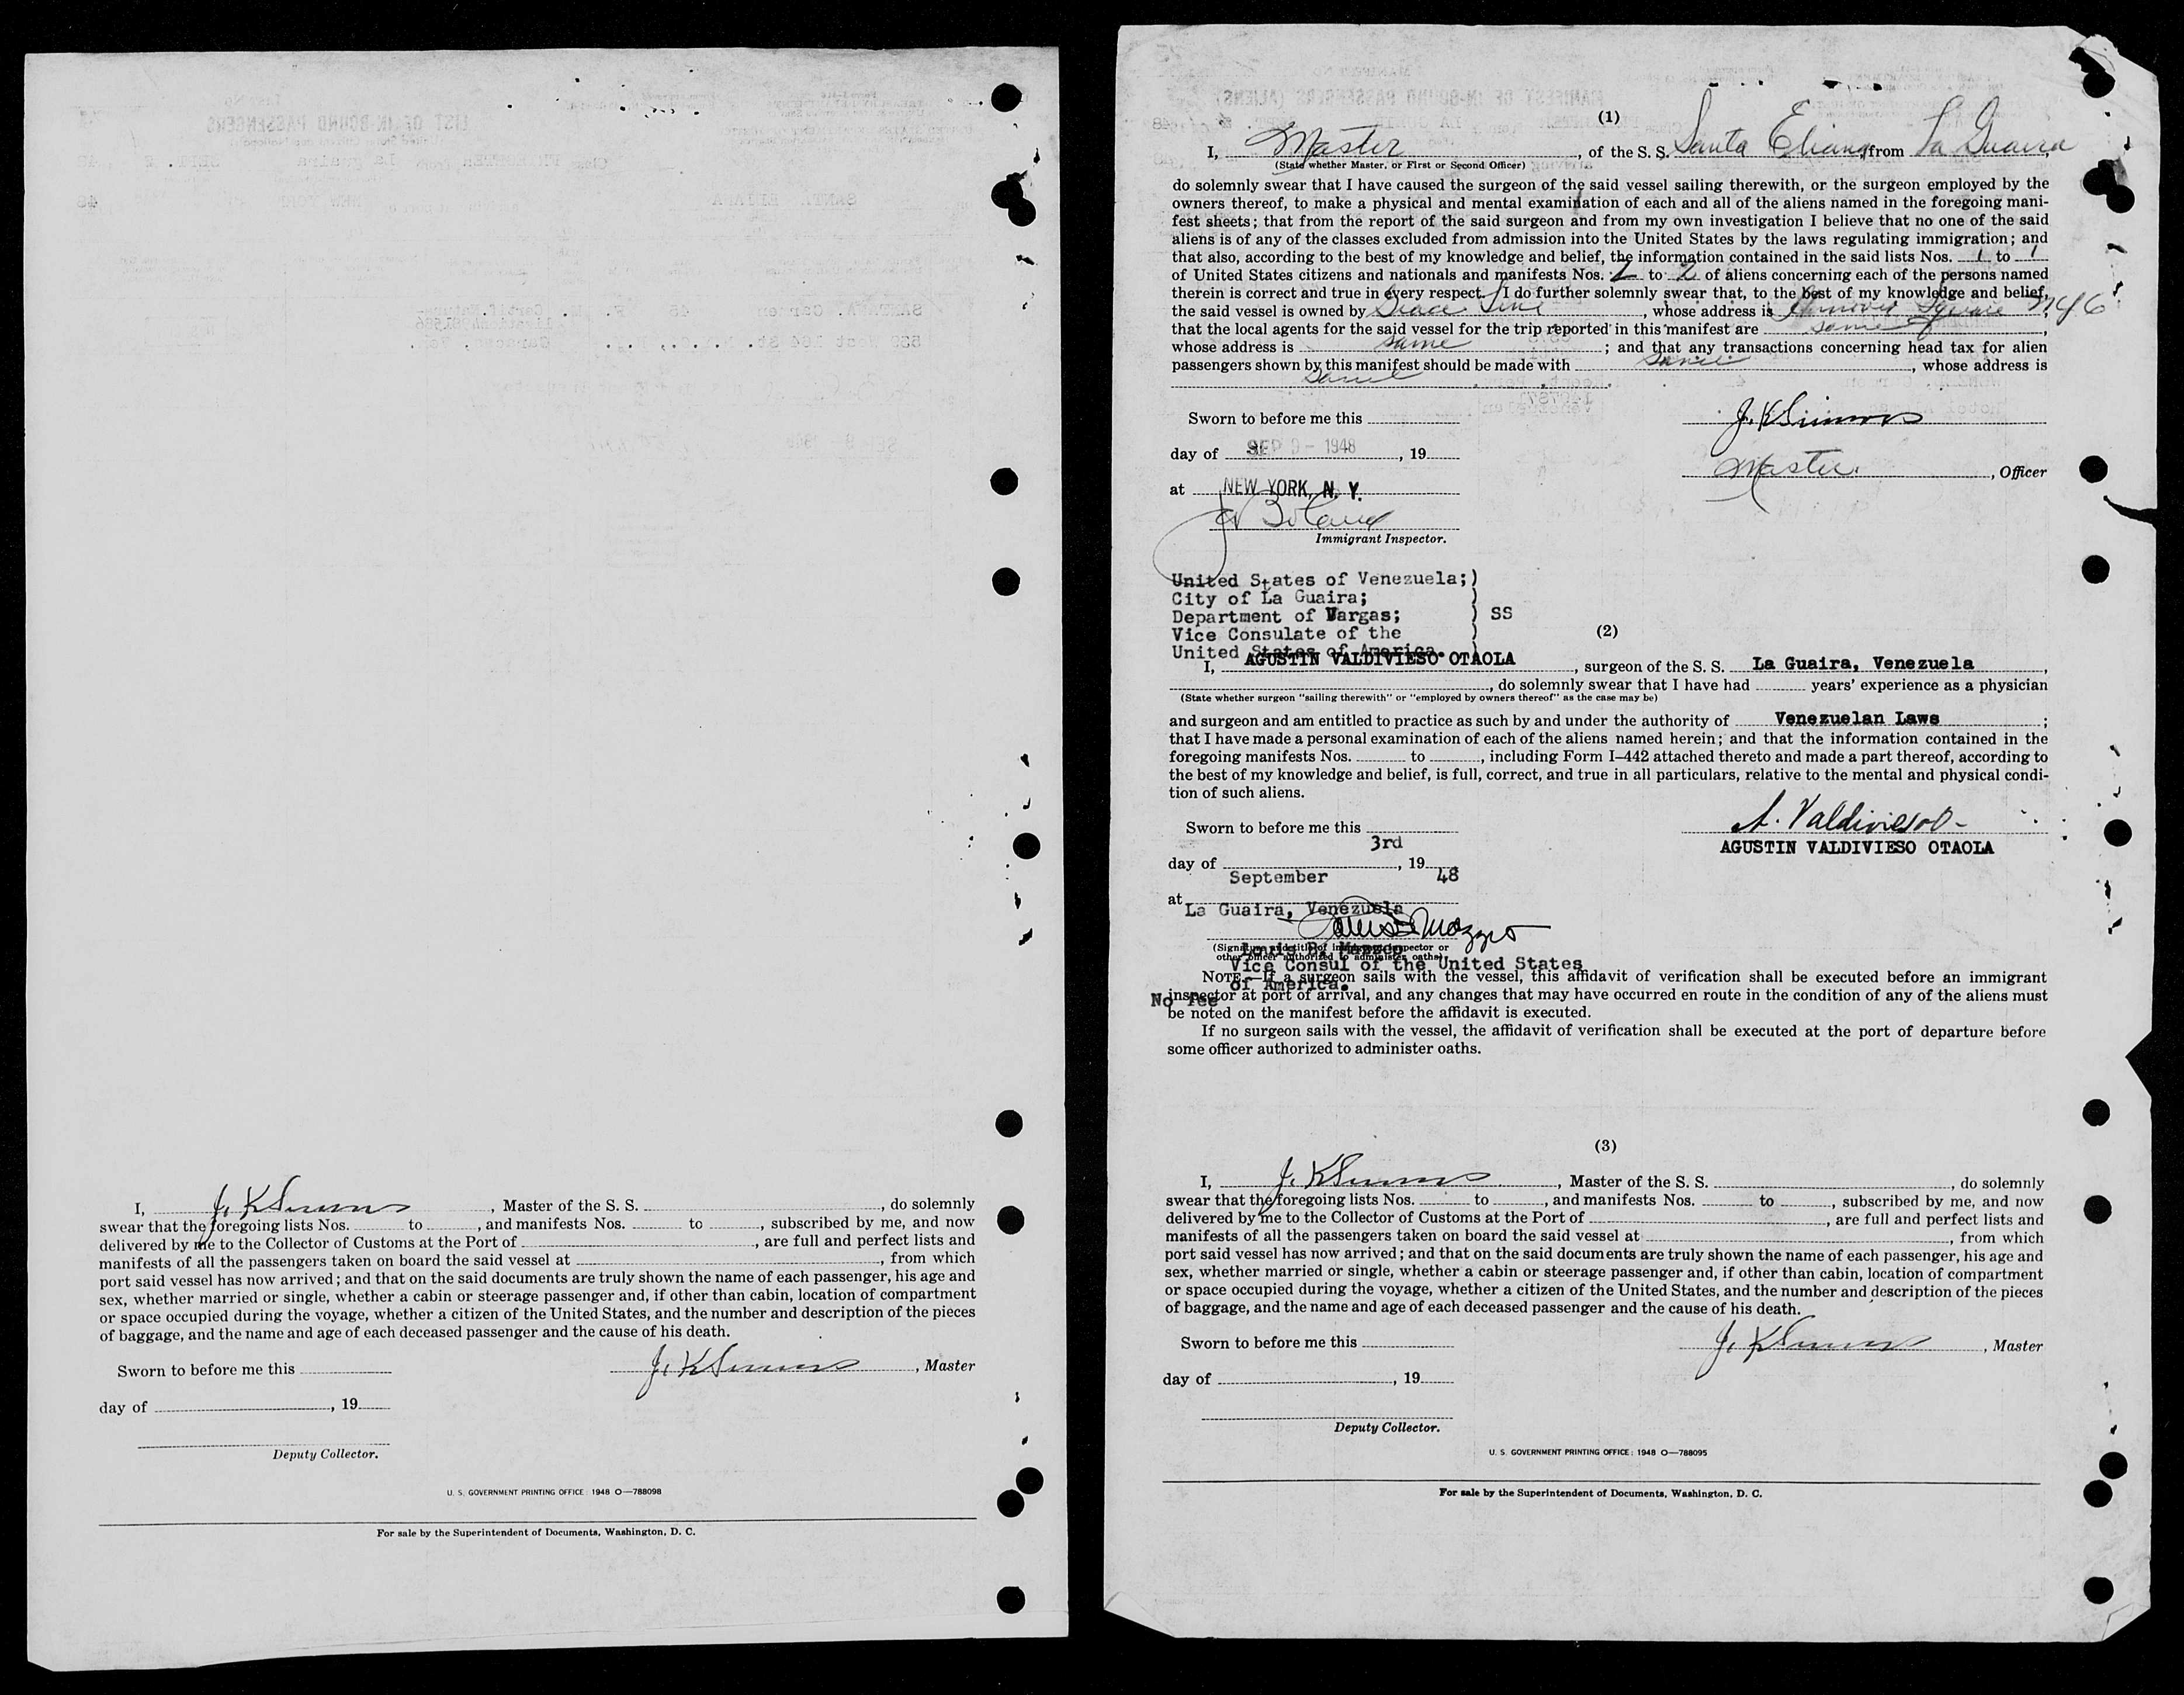 I, J. K Simmons, Master of the S. S. , do solemnly
swear that the foregoing lists Nos. to , and manifests Nos. to , subscribed by me, and now
delivered by me to the Collector of Customs at the Port of , are full and perfect lists and
manifests of all the passengers taken on board the said vessel at , from which
port said vessel has now arrived; and that on the said documents are truly shown the name of each passenger, his age and
sex, whether married or single, whether a cabin or steerage passenger and, if other than cabin, location of compartment
or space occupied during the voyage, whether a citizen of the United States, and the number and description of the pieces
of baggage, and the name and age of each deceased passenger and the cause of his death.
Sworn to before me this
J. K Simmons, Master
day of , 19
Deputy Collector.
U. S. GOVERNMENT PRINTING OFFICE: 1948 O—788098
For sale by the Superintendent of Documents, Washington, D. C.
(1)
I, Master, of the S. S. Santa Eliana, from La Guaira,
(State whether Master, or First or Second Officer)
do solemnly swear that I have caused the surgeon of the said vessel sailing therewith, or the surgeon employed by the
owners thereof, to make a physical and mental examination of each and all of the aliens named in the foregoing mani-
fest sheets; that from the report of the said surgeon and from my own investigation I believe that no one of the said
aliens is of any of the classes excluded from admission into the United States by the laws regulating immigration; and
that also, according to the best of my knowledge and belief, the information contained in the said lists Nos. 1 to 1
of United States citizens and nationals and manifests Nos. 2 to 2 of aliens concerning each of the persons named
therein is correct and true in every respect. I do further solemnly swear that, to the best of my knowledge and belief,
the said vessel is owned by Grace Line, whose address is Hanover Square NYC
that the local agents for the said vessel for the trip reported in this manifest are same,
whose address is same; and that any transactions concerning head tax for alien
passengers shown by this manifest should be made with same, whose address is
same
Sworn to before me this
J. K Simmons
day of SEP 9 - 1948, 19
Master, Officer
at NEW YORK, N. Y.
Immigrant Inspector.
United States of Venezuela;)
City of La Guaira; )
Department of Vargas; ) SS
Vice Consulate of the )
(2)
United States of America. )
I, AGUSTIN VALDIVIESO OTAOLA, surgeon of the S. S. La Guaira, Venezuela,
, do solemnly swear that I have had years' experience as a physician
(State whether surgeon "sailing therewith" or "employed by owners thereof" as the case may be)
and surgeon and am entitled to practice as such by and under the authority of Venezuelan Laws;
that I have made a personal examination of each of the aliens named herein; and that the information contained in the
foregoing manifests Nos. to , including Form I-442 attached thereto and made a part thereof, according to
the best of my knowledge and belief, is full, correct, and true in all particulars, relative to the mental and physical condi-
tion of such aliens.
Sworn to before me this
A. Valdivieso O-
3rd
AGUSTIN VALDIVIESO OTAOLA
day of , 19
September 48
at
La Guaira, Venezuela
(Signature and title of immigrant inspector or
other officer authorized to administer oaths)
Vice Consul of the United States
of America.
NOTE.—If a surgeon sails with the vessel, this affidavit of verification shall be executed before an immigrant
No Fee
inspector at port of arrival, and any changes that may have occurred en route in the condition of any of the aliens must
be noted on the manifest before the affidavit is executed.
If no surgeon sails with the vessel, the affidavit of verification shall be executed at the port of departure before
some officer authorized to administer oaths.
(3)
I, J. K Simmons, Master of the S. S. , do solemnly
swear that the foregoing lists Nos. to , and manifests Nos. to , subscribed by me, and now
delivered by me to the Collector of Customs at the Port of , are full and perfect lists and
manifests of all the passengers taken on board the said vessel at , from which
port said vessel has now arrived; and that on the said documents are truly shown the name of each passenger, his age and
sex, whether married or single, whether a cabin or steerage passenger and, if other than cabin, location of compartment
or space occupied during the voyage, whether a citizen of the United States, and the number and description of the pieces
of baggage, and the name and age of each deceased passenger and the cause of his death.
Sworn to before me this
J. K Simmons, Master
day of , 19
Deputy Collector.
U. S. GOVERNMENT PRINTING OFFICE: 1948 O—788095
For sale by the Superintendent of Documents, Washington, D. C.